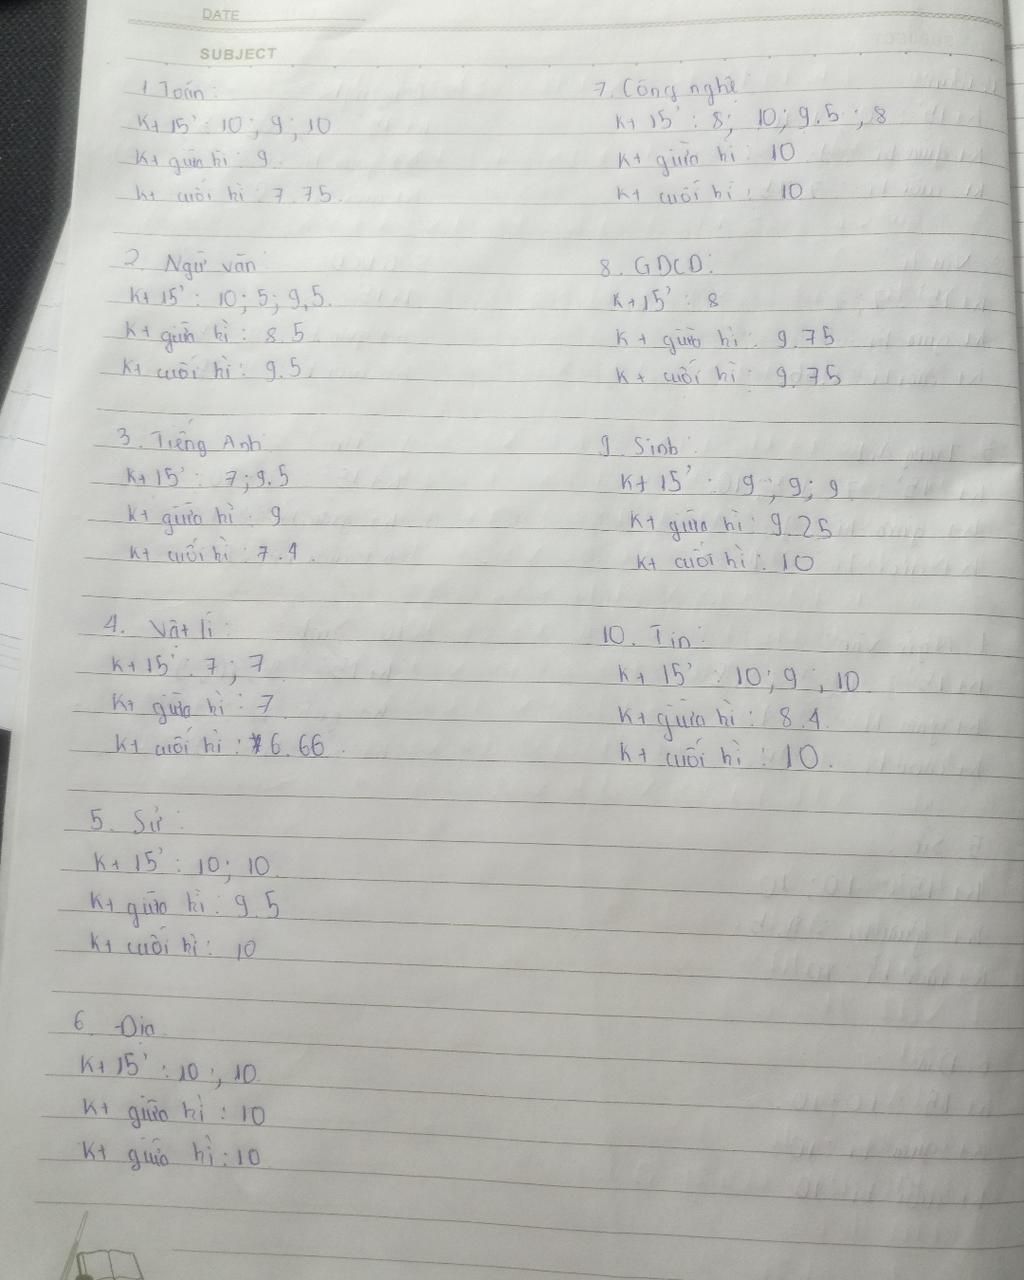 DATE
SUBJECT
1. Toán:
Kt 15' : 10 ; 9 ; 10
Kt giữa kì : 9
Kt cuối kì : 7.75.
2. Ngữ văn
Kt 15' : 10 ; 5 ; 9,5.
Kt giữa kì : 8.5
Kt cuối kì : 9.5
3. Tiếng Anh
Kt 15' : 7 ; 9.5
Kt giữa kì : 9
Kt cuối kì : 7.4.
4. Vật lí :
Kt 15' : 7 ; 7
Kt giữa kì : 7
Kt cuối kì : 6.66.
5. Sử :
Kt 15' : 10 ; 10
Kt giữa kì : 9.5
Kt cuối kì : 10
6. Địa
Kt 15' : 10 ; 10
Kt giữa kì : 10
Kt giữa kì : 10
7. Công nghệ
Kt 15' : 8 ; 10 ; 9.5 ; 8
Kt giữa kì : 10
Kt cuối kì : 10
8. GDCD :
Kt 15' : 8
Kt giữa kì : 9.75
Kt cuối kì : 9.75
9. Sinh :
Kt 15' : 9 ; 9 ; 9
Kt giữa kì : 9.25
Kt cuối kì : 10
10. Tin :
Kt 15' : 10 ; 9 , 10
Kt giữa kì : 8.4.
Kt cuối kì : 10.